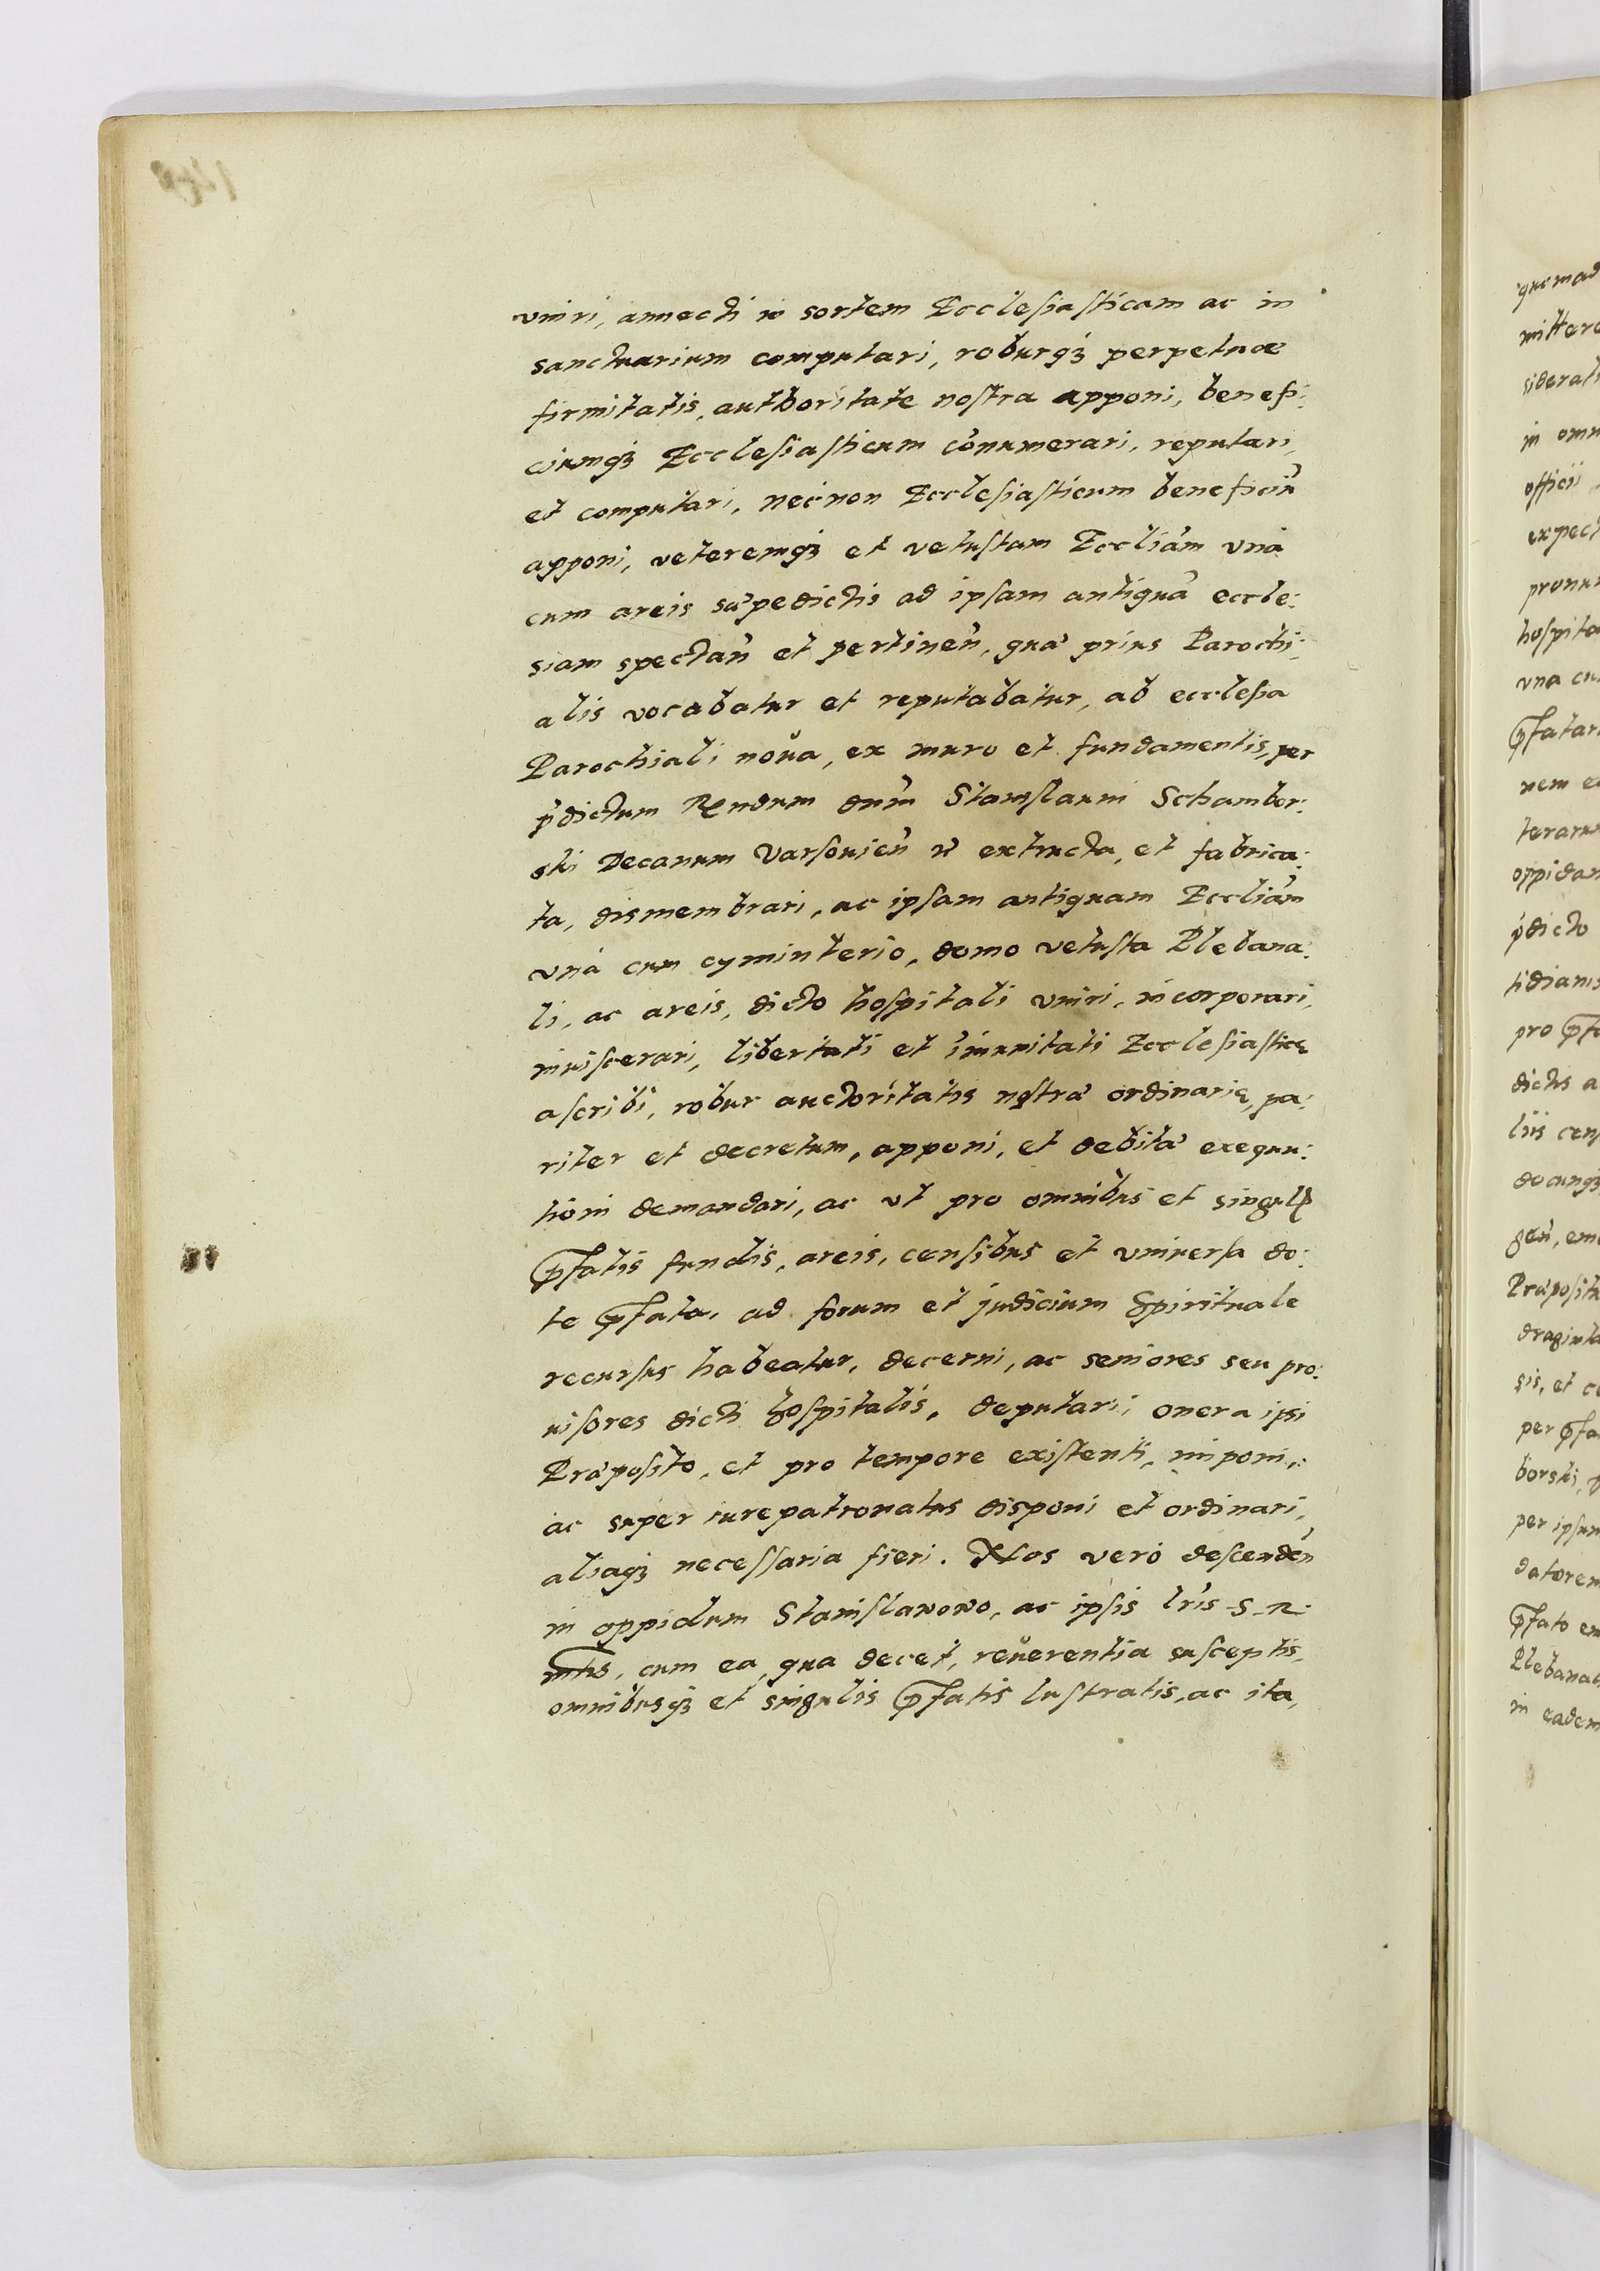 vniri, annecti in sortem Ecclesiasticam ac in
sanctuarium computari, roburq₃ perpetuæ
firmitatis, authoritate nostra apponi, benefi:
ciumq₃ Ecclesiasticum cōnumerari, reputari,
et computari, necnon Ecclesiasticum beneficiū
apponi, veteremq₃ et vetustam Eccliam̄ vna
cum areis sup̄edictis ad ipsam antiquā eccle:
siam spectan̄ et pertinen̄, qua prius Parochi:
alis vocabatur et reputabatur, ab ecclesia
Parochiali noua, ex muro et fundamentis, per
p̄dictum Rn̄dum dn̄m Stanislaum Schambor:
ski Decanum Varsouien̄ extructa, et fabrica:
ta, dismembrari, ac ipsam antiquam Eccliam̄
vna cum cyminterio, domo vetusta Plebana:
li, ac areis, dicto hospitali vniri, incorporari,
inuiscerari, libertati et im̄unitati Ecclesiasticę
ascribi, robur auctoritatis nostra ordinarię, pa:
riter et decretum, apponi, et debita exequu:
tioni demandari, ac vt pro omnibus et singulꝭ
p̄fatis fundis, areis, censibus et vniuersa do:
te p̄fata, ad forum et judicium Spirituale
recursus habeatur, decerni, ac seniores seu pro:
uisores dicti hospitalis, deputari, onera ipsi
Præposito, et pro tempore existenti, imponi,
ac super iurepatronatus disponi et ordinari,
aliaq₃ necessaria fieri. Nos vero descenden̄
in oppidum Stanislawowo, ac ipsis lr̄is S. R.
mtis, cum ea, qua decet, reuerentia susceptis,
omnibusq₃ et singulis p̄fatis lustratis, ac ita,
quemad
mittere
siderati
in omn
officii
expect
pronun
hospita
vna cu
p̄fatar
nem e
terarum
oppidan
p̄dicto
tidianis
pro p̄fa
dictis a
liis cens
docunq₃
gen̄, em
Præpositu
draginta
sis, et c
per p̄fa
borski,
per ipsum
datorem
p̄fato em
Plebanat
in eadem